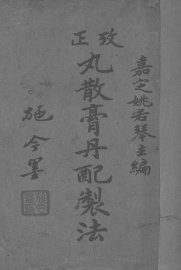 嘉定姚若琴主編
攷正
丸散膏丹配製法
施今墨